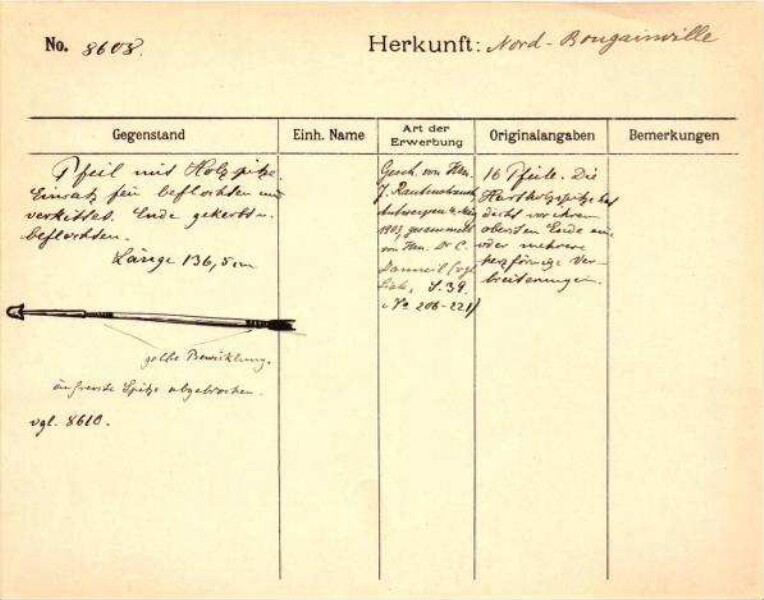 No. 8608.
Herkunft: Nord-Bougainville
Gegenstand
Einh. Name
Art der Erwerbung
Originalangaben
Bemerkungen
Pfeil mit Holzspitze.
Einsatz fein beflochten und
verkittet. Ende gekerbt u.
beflochten.
Länge 136,5 cm
gelbe Bewicklung.
äußerste Spitze abgebrochen.
vgl. 8610.
Gesch. von Hrn.
J.
Antwerpen
1903, gesammelt
von Hrn. Dr C.
Danneil (vgl.
Liste, S. 39.
No 206-221)
16 Pfeile. Die
Hartholzspitze hat
dicht vor ihrem
obersten Ende eine
oder mehrere
herzförmige Ver-
breiterungen.